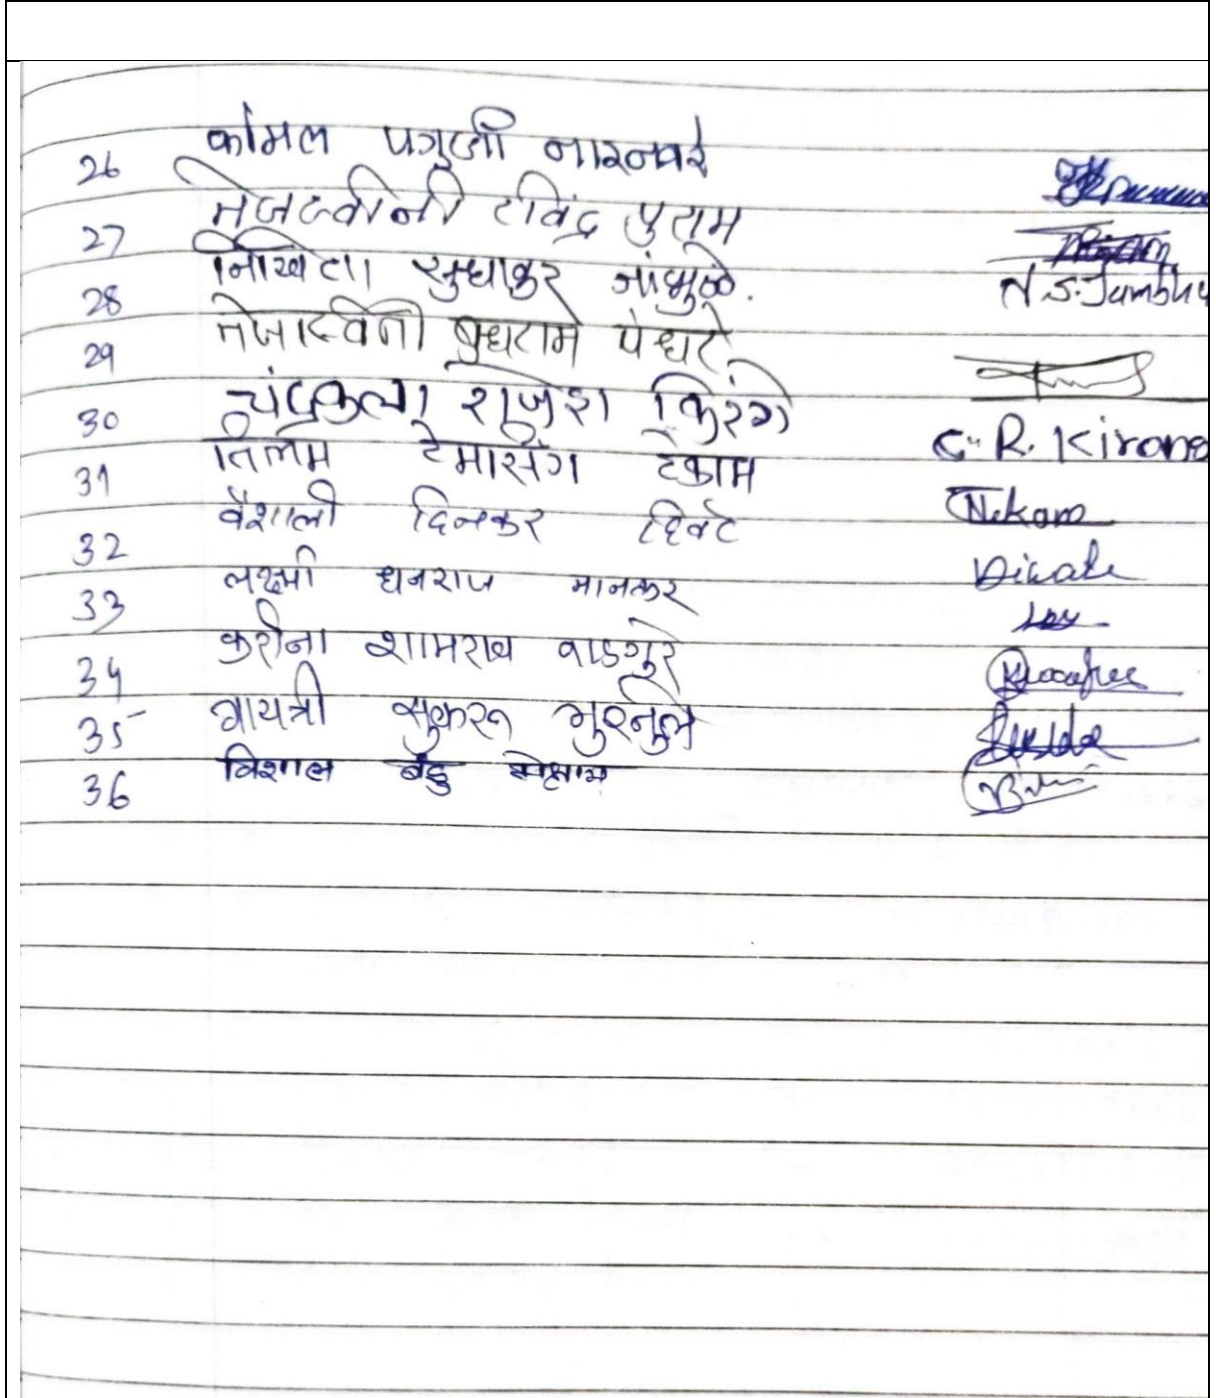 26 कोमल पगुजी नारनवरे
27 तेजस्वीनी रविंद्र पुराम
28 निखिता सुधाकर जांभुळे. N.S.Jambhu
29 तेजस्विनी बुधराम पंधरे
30 चंद्रकला राजेश किरंगे C. R. Kirange
31 तिलम टेमासिंग टेकाम Tekam
32 वैशाली दिनकर दिवटे Divate
33 लक्ष्मी धनराज मानकर Lax
34 करीना शामराव वाडगुरे
35 गायत्री सुकरू गुरनुले
36 विशाल बंडु मेश्राम